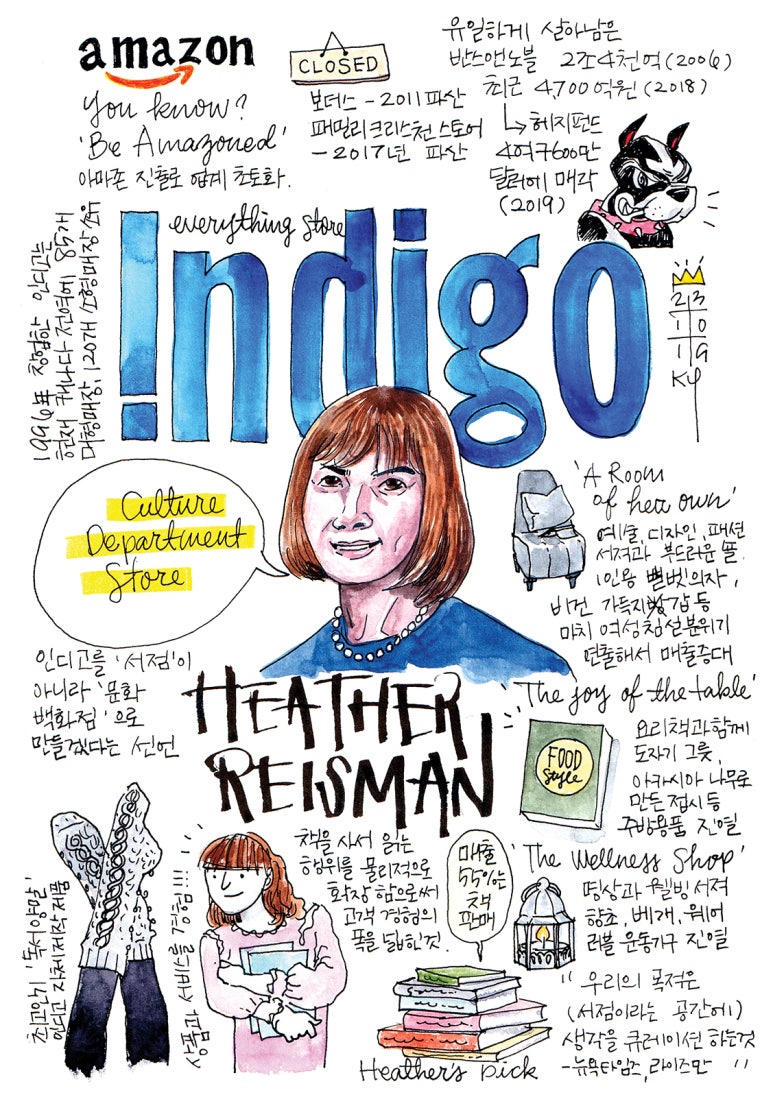 amazon
you know?
'Be Amazoned'
아마존 진출로 업계 초토화.
CLOSED
보더스 - 2011 파산
패밀리 크리스천 스토어
- 2017년 파산
유일하게 살아남은
반스앤노블 2조4천억(2006)
최근 4,700억원(2018)
↳ 헤지펀드
4억7600만
달러에 매각
(2019)
1996년 창업한 인디고는
현재 캐나다 전역에 85개
대형매장, 120개 소형매장 소유
everything store
indigo
23
10
19
KY
Culture
Department
Store
인디고를 '서점'이
아니라 '문화
백화점'으로
만들겠다는 선언
HEATHER
REISMAN
'A Room
of her own'
예술, 디자인, 패션
서적과 부드러운 숄.
1인용 벨벳의자,
비건 가득 장갑 등
마치 여성 침실 분위기
연출해서 매출증대
'The joy of the table'
FOOD
Style
요리책과 함께
도자기 그릇,
아카시아 나무로
만든 접시 등
주방용품 진열
'The Wellness Shop'
명상과 웰빙 서적
향초, 베개, 웨어
러블 운동기구 진열
최고인기 '독서양말'
인디고 자체제작 제품
상품과 서비스를 경험!!!
책을 사서 읽는
행위를 물리적으로
확장함으로써
고객 경험의
폭을 넓힌것.
매출
55%는
책
판매
Heather's pick
"우리의 목적은
(서점이라는 공간에)
생각을 큐레이션 하는것
- 뉴욕타임즈, 라이즈만 "